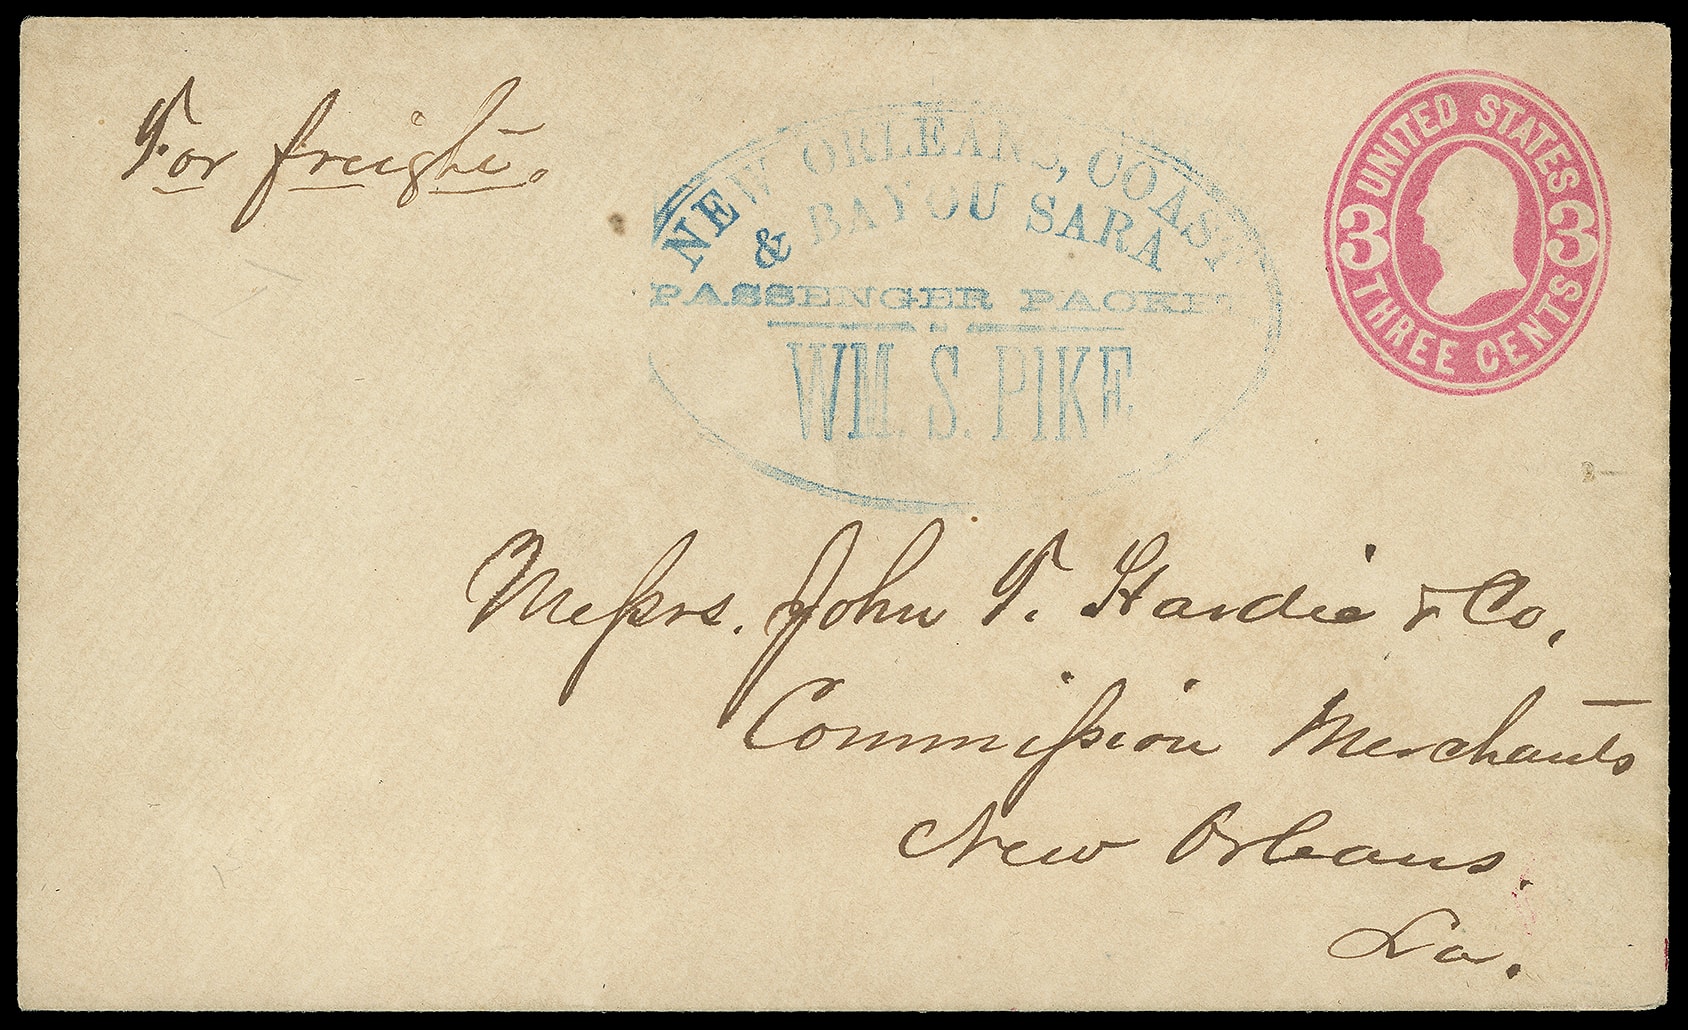 For freight.
NEW ORLEANS, COAST
& BAYOU SARA
PASSENGER PACKET
WM. S. PIKE
UNITED STATES
3 3
THREE CENTS
Messrs. John T. Hardie & Co,
Commission Merchants
New Orleans.
La.